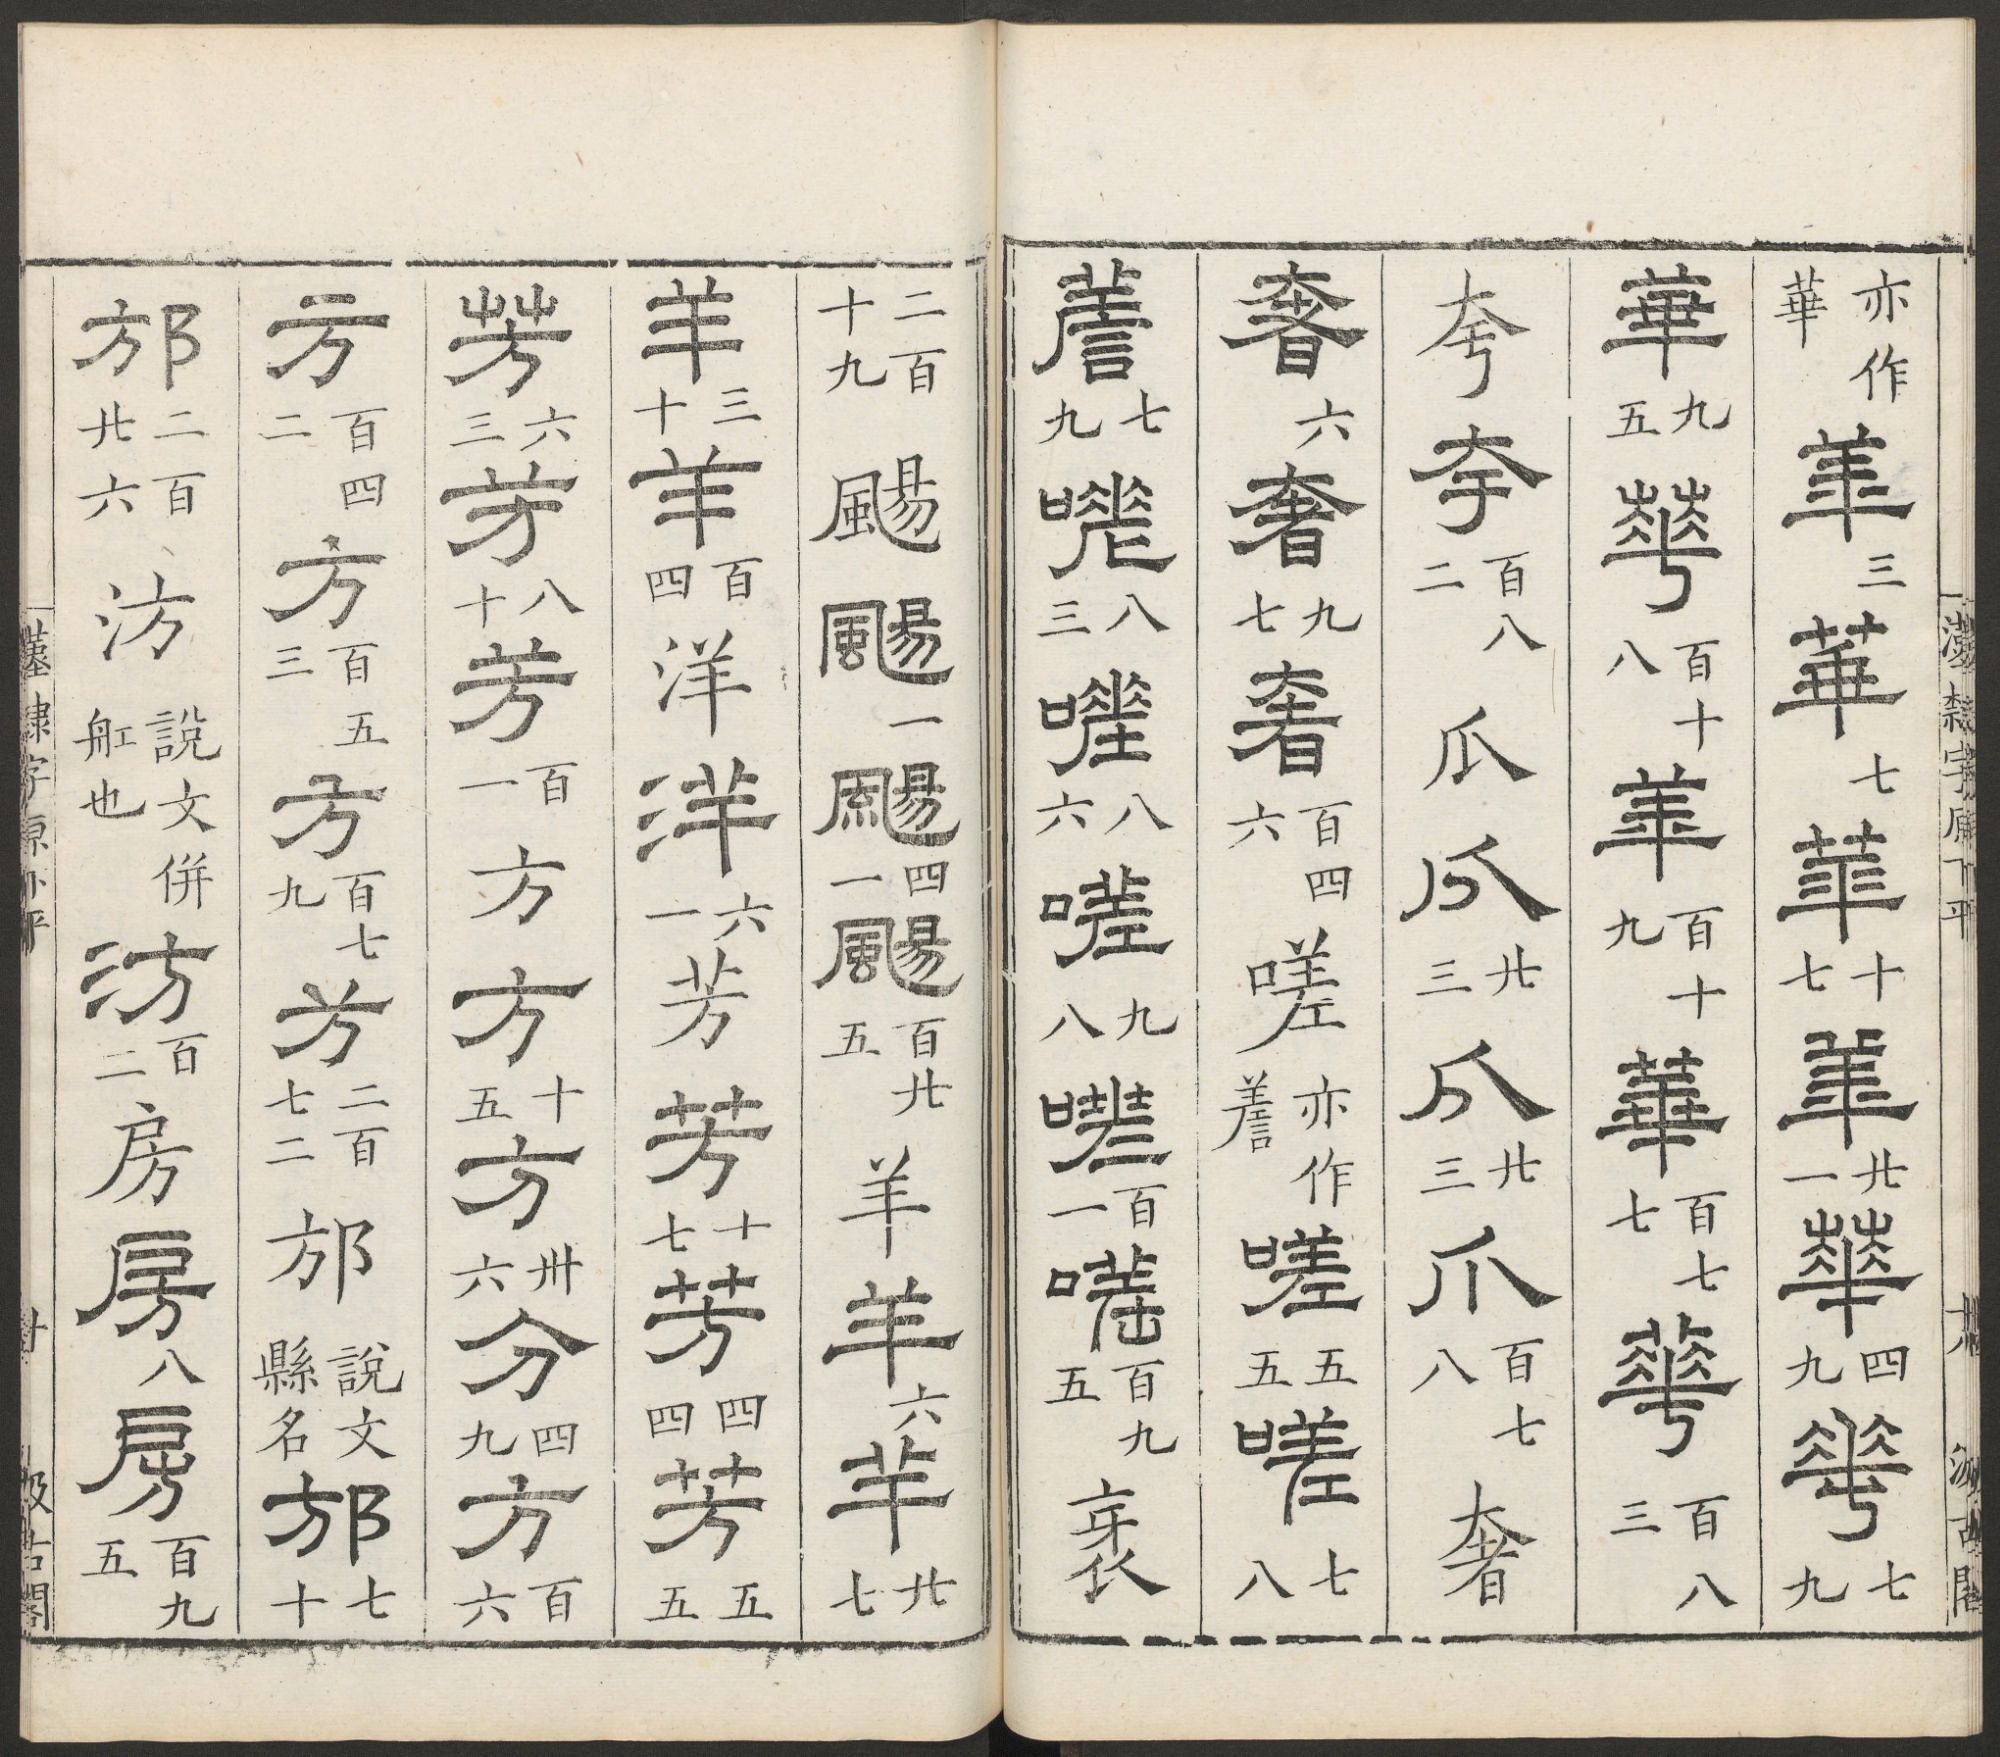 漢隸字原下平 汲古閣
亦作華 華 三 華 七 華 十七 華 廿一 華 四九 華 七九
華 九五 華 百十八 華 百十九 華 百七七 華 百八三
夸 夸 百八二 瓜 瓜 廿三 瓜 廿三 瓜 百七八 奢
奢 六 奢 九七 奢 百四六 嗟 亦作 嗟 五五 嗟 七八
七九 嗟 八三 嗟 八六 嗟 九八 嗟 百一 嗟 百九五 衺
二百十九 颺 颺 一 颺 四一 颺 百廿五 羊 羊 六 羊 廿七
羊 三十 羊 百四 洋 洋 六一 芳 芳 十七 芳 四四 芳 五五
芳 六三 芳 八十 芳 百一 方 方 十五 方 卅六 方 四九 方 百六
方 百四二 方 百五三 方 百七九 方 二百七二 邡 說文縣名 邡 七十
邡 二百廿六 汸 說文併舡也 汸 百二 房 房 八 房 百九五
漢隸字原下平 廿 汲古閣